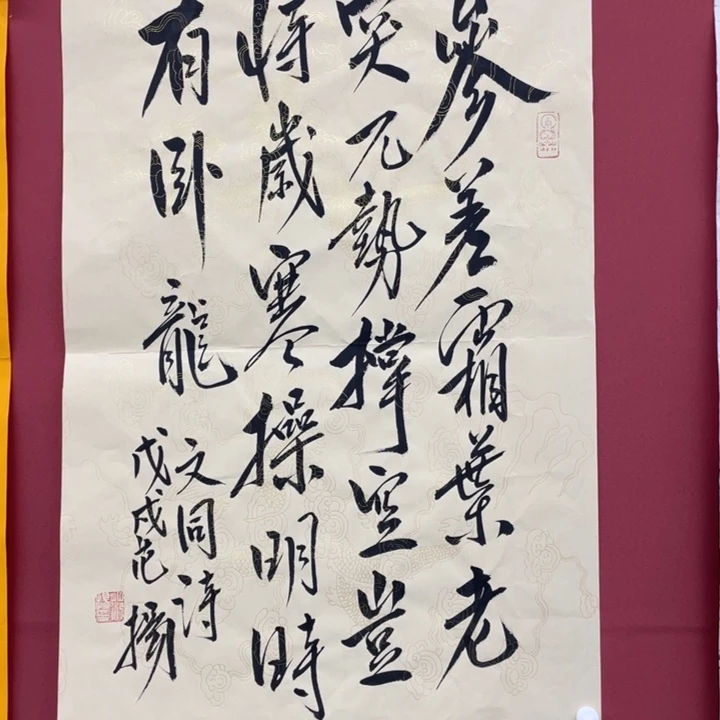 參差霜葉老
突兀勢撑空豈
恃歲寒操明時
有卧龍
文同詩
戊戌范揚